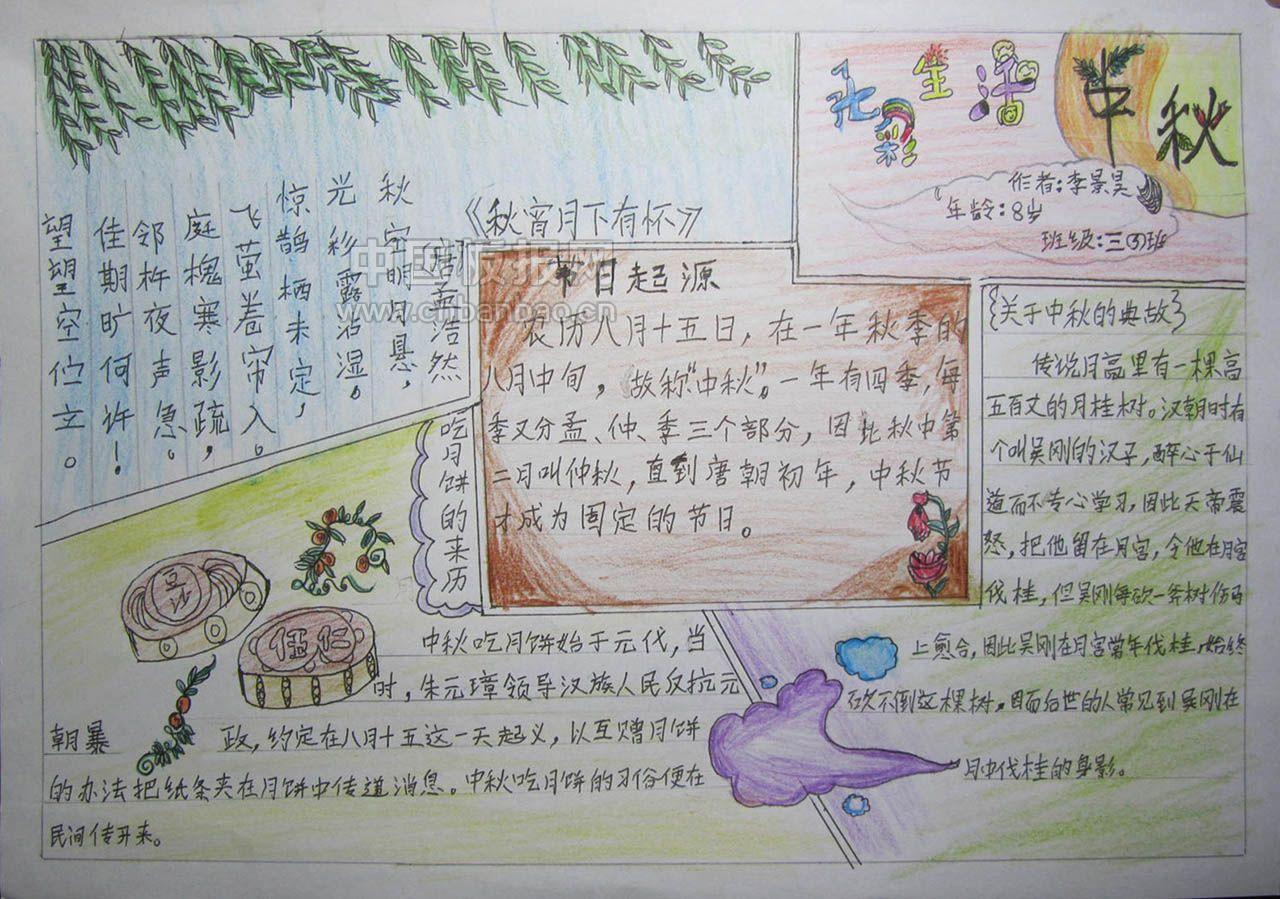 七彩生活
中秋
作者:李景昊
年龄:8岁
班级:三③班
《秋宵月下有怀》
唐孟浩然
秋空明月悬,
光彩露沾湿。
惊鹊栖未定,
飞萤卷帘入。
庭槐寒影疏,
邻杵夜声急。
佳期旷何许!
望望空伫立。
节日起源
农历八月十五日,在一年秋季的
八月中旬,故称“中秋”。一年有四季,每
季又分孟、仲、季三个部分,因此秋中第
二月叫仲秋,直到唐朝初年,中秋节
才成为固定的节日。
{关于中秋的典故}
传说月亮里有一棵高
五百丈的月桂树。汉朝时有
个叫吴刚的汉子,醉心于仙
道而不专心学习,因此天帝震
怒,把他留在月宫,令他在月宫
伐桂,但吴刚每砍一斧树伤马
上愈合,因此吴刚在月宫常年伐桂,始终
砍不倒这棵树,因而后世的人常见到吴刚在
月中伐桂的身影。
吃月饼的来历
豆沙
伍仁
中秋吃月饼始于元代,当
时,朱元璋领导汉族人民反抗元
朝暴 政,约定在八月十五这一天起义,以互赠月饼
的办法把纸条夹在月饼中传道消息。中秋吃月饼的习俗便在
民间传开来。
中国板报网
www.chbanbao.cn